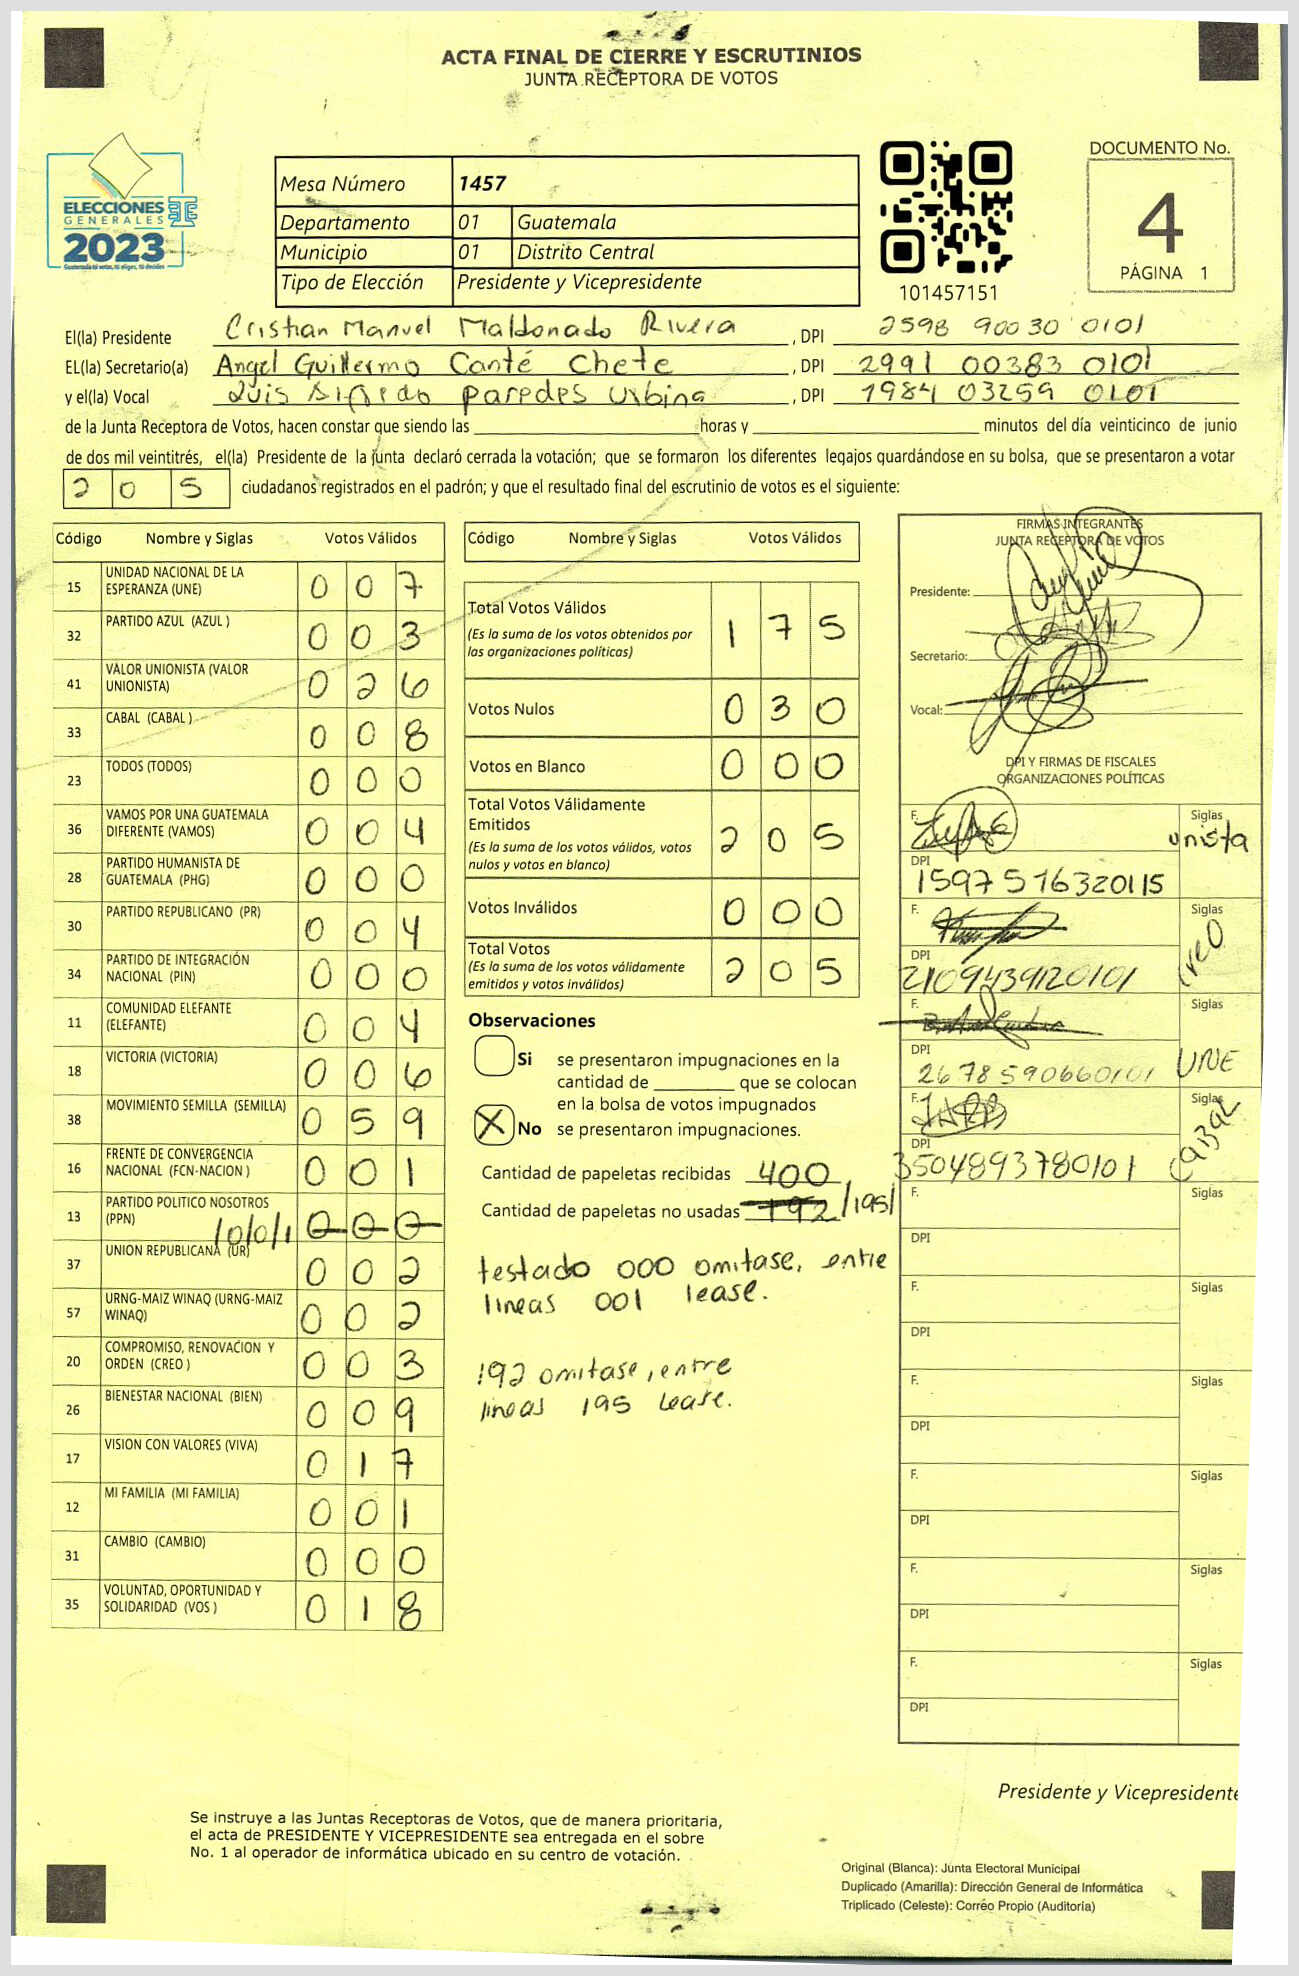 ACTA FINAL DE CIERRE Y ESCRUTINIOS
JUNTA RECEPTORA DE VOTOS
ELECCIONES
GENERALES
2023
Mesa Número 1457
Departamento 01 Guatemala
Municipio 01 Distrito Central
Tipo de Elección Presidente y Vicepresidente
101457151
DOCUMENTO No.
4
PÁGINA 1
El(la) Presidente Cristian Manuel Maldonado Rivera , DPI 2598 90030 0101
EL(la) Secretario(a) Angel Guillermo Canté Chete , DPI 2991 00383 0101
y el(la) Vocal Luis Alfredo Paredes Urbina , DPI 1984 03259 0101
de la Junta Receptora de Votos, hacen constar que siendo las horas y minutos del día veinticinco de junio
de dos mil veintitrés, el(la) Presidente de la junta declaró cerrada la votación; que se formaron los diferentes legajos guardándose en su bolsa, que se presentaron a votar
205 ciudadanos registrados en el padrón; y que el resultado final del escrutinio de votos es el siguiente:
Código Nombre y Siglas Votos Válidos
15 UNIDAD NACIONAL DE LA ESPERANZA (UNE) 0 0 7
32 PARTIDO AZUL (AZUL ) 0 0 3
41 VALOR UNIONISTA (VALOR UNIONISTA) 0 2 6
33 CABAL (CABAL ) 0 0 8
23 TODOS (TODOS) 0 0 0
36 VAMOS POR UNA GUATEMALA DIFERENTE (VAMOS) 0 0 4
28 PARTIDO HUMANISTA DE GUATEMALA (PHG) 0 0 0
30 PARTIDO REPUBLICANO (PR) 0 0 4
34 PARTIDO DE INTEGRACIÓN NACIONAL (PIN) 0 0 0
11 COMUNIDAD ELEFANTE (ELEFANTE) 0 0 4
18 VICTORIA (VICTORIA) 0 0 6
38 MOVIMIENTO SEMILLA (SEMILLA) 0 5 9
16 FRENTE DE CONVERGENCIA NACIONAL (FCN-NACION ) 0 0 1
13 PARTIDO POLITICO NOSOTROS (PPN) /0/0/1 0 0 0
37 UNION REPUBLICANA (UR) 0 0 2
57 URNG-MAIZ WINAQ (URNG-MAIZ WINAQ) 0 0 2
20 COMPROMISO, RENOVACION Y ORDEN (CREO ) 0 0 3
26 BIENESTAR NACIONAL (BIEN) 0 0 9
17 VISION CON VALORES (VIVA) 0 1 7
12 MI FAMILIA (MI FAMILIA) 0 0 1
31 CAMBIO (CAMBIO) 0 0 0
35 VOLUNTAD, OPORTUNIDAD Y SOLIDARIDAD (VOS ) 0 1 8
Código Nombre y Siglas Votos Válidos
Total Votos Válidos 1 7 5
(Es la suma de los votos obtenidos por
las organizaciones políticas)
Votos Nulos 0 3 0
Votos en Blanco 0 0 0
Total Votos Válidamente
Emitidos 2 0 5
(Es la suma de los votos válidos, votos
nulos y votos en blanco)
Votos Inválidos 0 0 0
Total Votos 2 0 5
(Es la suma de los votos válidamente
emitidos y votos inválidos)
Observaciones
Si se presentaron impugnaciones en la
cantidad de que se colocan
en la bolsa de votos impugnados
X No se presentaron impugnaciones.
Cantidad de papeletas recibidas 400
Cantidad de papeletas no usadas 192 /195/
testado 000 omitase, entre
lineas 001 lease.
192 omitase, entre
lineas 195 lease.
FIRMAS INTEGRANTES
JUNTA RECEPTORA DE VOTOS
Presidente:
Secretario:
Vocal:
DPI Y FIRMAS DE FISCALES
ORGANIZACIONES POLÍTICAS
F. Siglas
unista
DPI
1597516320115
F. Siglas
creO
DPI
2109439120101
F. Siglas
DPI
2678590660101 UNE
F. Siglas
CABAL
DPI
3504893780101
F. Siglas
DPI
F. Siglas
DPI
F. Siglas
DPI
F. Siglas
DPI
F. Siglas
DPI
F. Siglas
DPI
Presidente y Vicepresidente
Se instruye a las Juntas Receptoras de Votos, que de manera prioritaria,
el acta de PRESIDENTE Y VICEPRESIDENTE sea entregada en el sobre
No. 1 al operador de informática ubicado en su centro de votación.
Original (Blanca): Junta Electoral Municipal
Duplicado (Amarilla): Dirección General de Informática
Triplicado (Celeste): Corréo Propio (Auditoría)